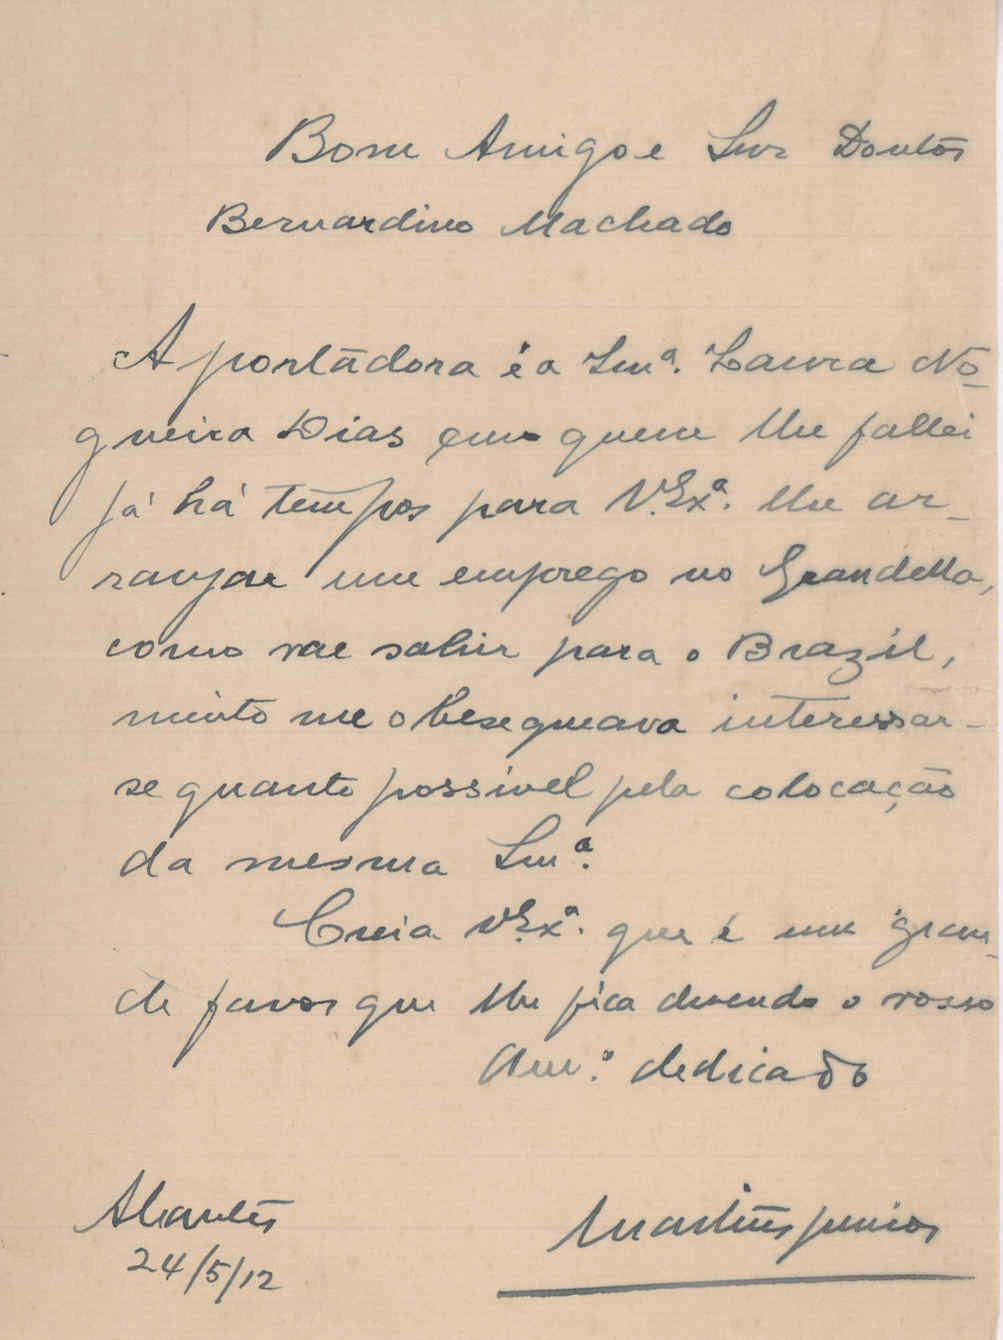 Bom Amigo e Snr Doutor
Bernardino Machado
A portadora é a Snrª. Laura No-
gueira Dias em quem lhe fallei
já há tempos para V. Exª. lhe ar-
ranjar um emprego no Grandella,
como vae sahir para o Brazil,
muito me obsequeava interessar-
se quanto possivel pela colocação
da mesma Snrª.
Creia V. Exª. que é um gran-
de favor que lhe fica devendo o vosso
Amº. dedicado
Abrantes
24/5/12
Martins Junior